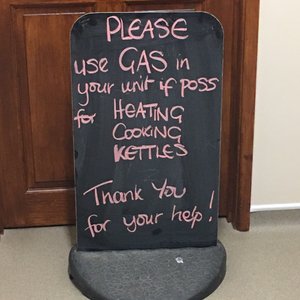 PLEASE
use GAS in
your unit if poss
for HEATING
COOKING
KETTLES
Thank You
for your help!